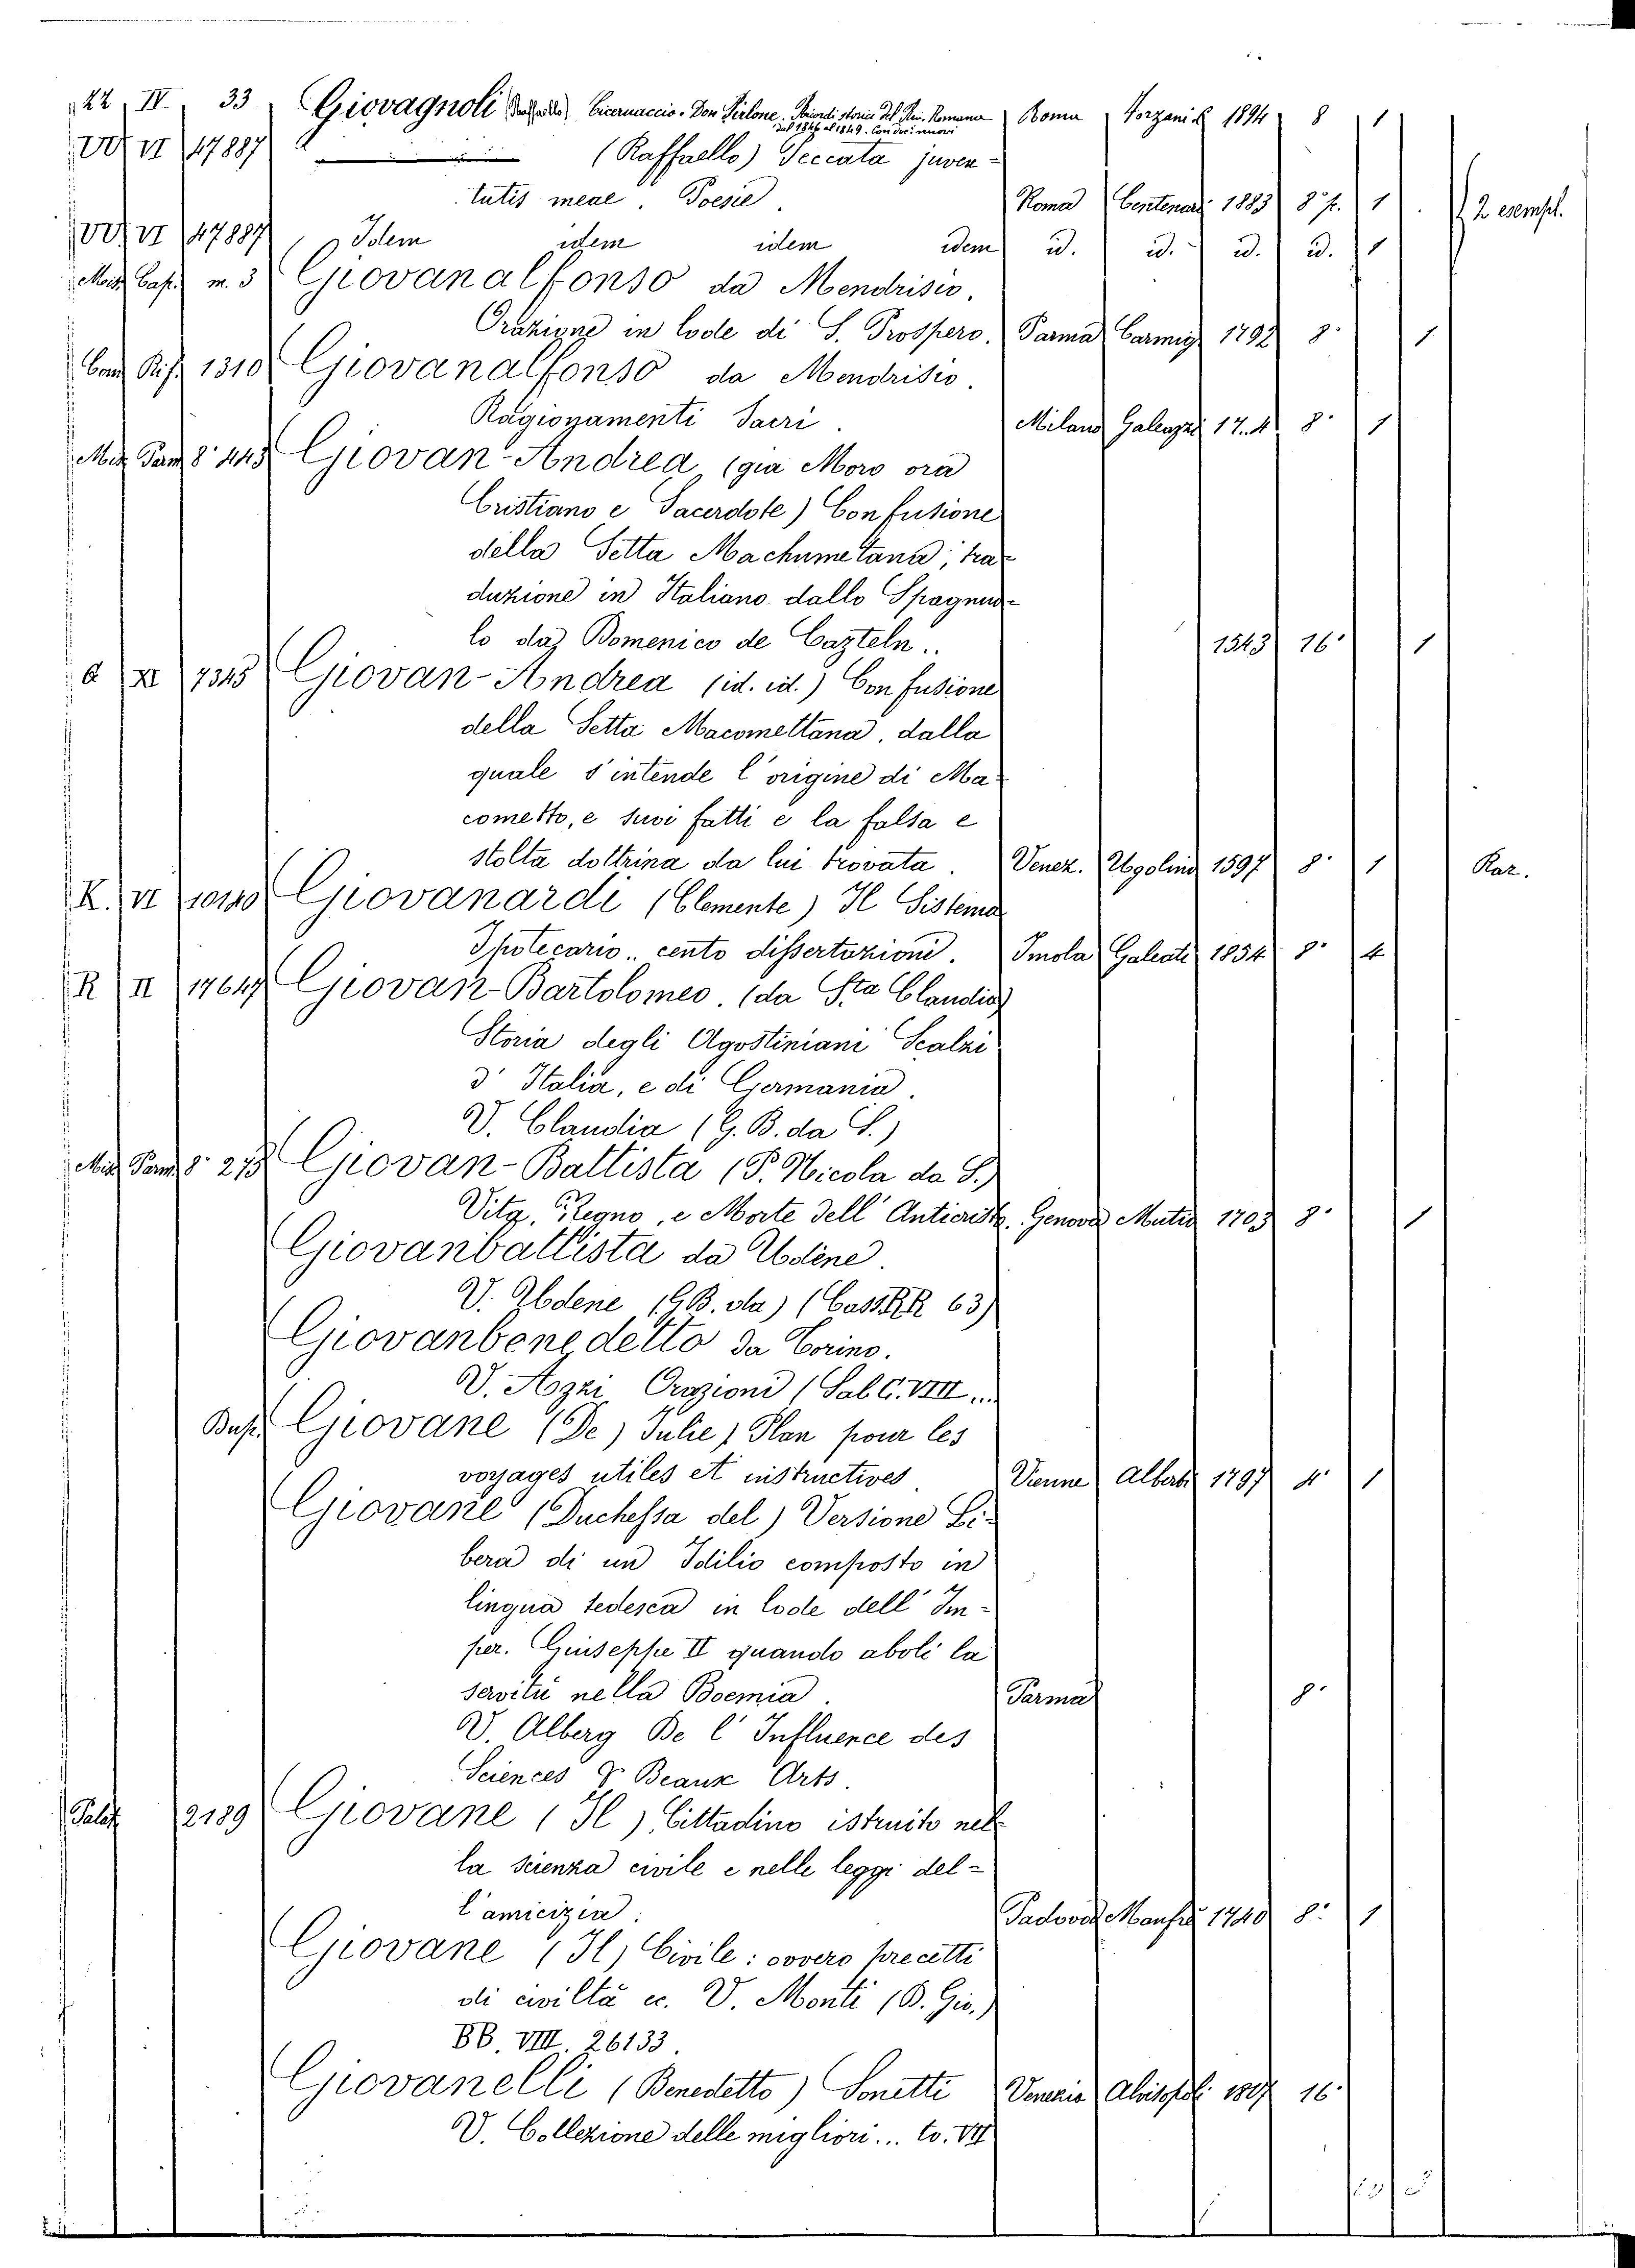 22 IV 33 Giovagnoli (Raffaello) Ciceruaccio. Don Pirlone. Ricordi storici del Riv. Romana Roma Forzani 1894 8 1
dal 1846 al 1849. Con doc. nuovi
VI 47887 (Raffaello) Peccata juven-
tutis meae. Poesie. Roma Centenari 1883 8° p. 1 2 esempl.
VI 47887 Idem idem idem idem id. id. id. id. 1
Misc. Cap. m. 3 Giovanalfonso da Mendrisio.
Orazione in lode di S. Prospero. Parma Carmig. 1792 8° 1
1310 Giovanalfonso da Mendrisio.
Ragionamenti Sacri. Milano Galeazzi 17.4 8° 1
Misc. Parm. 8° 445 Giovan-Andrea (gia Moro ora
Cristiano e Sacerdote) Confusione
della Setta Machumetana, tra-
duzione in Italiano dallo Spagnuo-
lo da Domenico de Gazteln.. 1543 16° 1
XI 7345 Giovan-Andrea (id. id.) Confusione
della Setta Macomettana, dalla
quale s'intende l'origine di Ma-
cometto, e suoi fatti e la falsa e
stolta dottrina da lui trovata. Venez. Ugolino 1597 8° 1 Rar.
K. VI 10140 Giovanardi (Clemente) Il Sistema
Ipotecario.. cento dissertazioni. Imola Galeati 1854 8° 4
R II 17647 Giovan-Bartolomeo. (da Sta Claudia)
Storia degli Agostiniani Scalzi
d'Italia, e di Germania.
V. Claudia (G. B. da S.)
Misc. Parm. 8° Giovan-Battista (P. Nicola da S.)
Vita, Regno, e Morte dell'Anticristo. Genova Mutio 1703 8° 1
Giovanbattista da Udine.
V. Udene (G.B. da) (Cass. RR 63)
Giovanbenedetto da Torino.
V. Orazioni (Sal. C. VIII...
Giovane (De) Julie) Plan pour les
voyages utiles et instructives Vienne Alberti 1797 4° 1
Giovane (Duchessa del) Versione Li-
bera di un Idilio composto in
lingua tedesca in lode dell'Im-
per. Giuseppe II quando abolì la
servitù nella Boemia. Parma 8°
V. Alberg De l'Influence des
Sciences & Beaux Arts.
Palat. 12189 Giovane (Il) Cittadino istruito nel-
la scienza civile e nelle leggi del-
l'amicizia. Padova Manfrè 1740 8° 1
Giovane (Il) Civile: ovvero precetti
di civiltà ec. V. Monti (D. Gio.)
BB. VIII. 26133.
Giovanelli (Benedetto) Sonetti Venezia Alvisopoli 1807 16°
V. Collezione delle migliori... to. VII